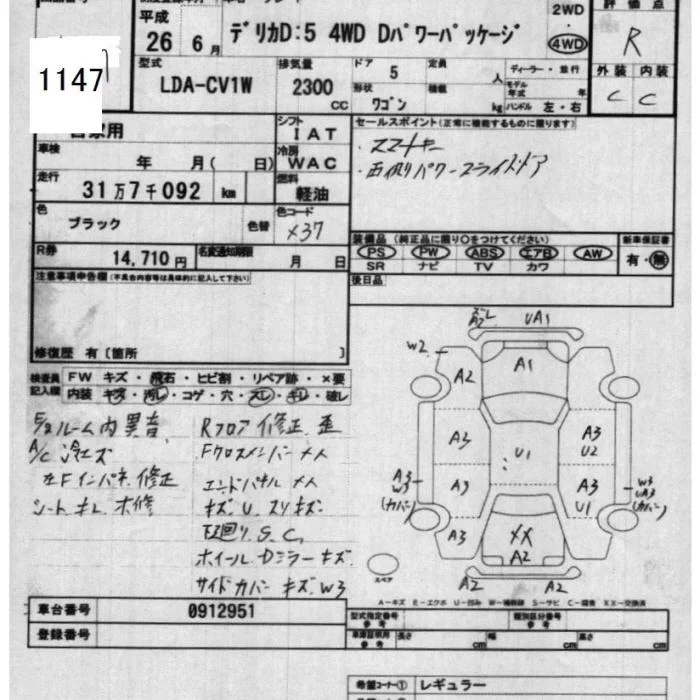 平成
26 6月
デリカD:5 4WD Dパワーパッケージ
2WD
4WD
評価点
R
1147
型式
LDA-CV1W
排気量
2300
CC
ドア
5
定員
人
ディーラー・並行
外装 内装
C C
形状
ワゴン
積載
kg
モデル年式
年
ハンドル 左・右
自家用
シフト
IAT
セールスポイント(正常に機能するものに限ります)
・スマートキー
・両側パワースライドドア
車検
年 月( 日)
冷房
WAC
走行
31万7千092 km
燃料
軽油
色
ブラック
色替
色コード
X37
R券
14,710円
名変通知期限
月 日
装備品(純正品に限り○をつけてください)
PS PW ABS エアB AW
SR ナビ TV カワ
新車保証書
有・無
後日品
注意事項申告欄(不具合内容等は具体的に記入して下さい)
修復歴 有〔箇所 〕
検査員記入欄
FW キズ・飛石・ヒビ割・リペア跡・×要
内装 キズ・汚レ・コゲ・穴・スレ・キレ・破レ
ルーム内異音
A/C 冷エズ
左Fインパネ修正
シートキレ 補修
Rフロア修正 歪
Fクロスメンバー 凹
エンドパネル 凹
キズ U. スリキズ
下廻り S.C.
ホイール Dミラーキズ
サイドカバー キズ W3
UA1
W2
A2
A1
A3
U1
A3
U2
A3
W3
(カバー)
A3
A3
U1
W3
UA3
(カバー)
A3
XX
A2
スペア
A2 A2
A-キズ E-エクボ U-凹み W-補修跡 S-サビ C-腐食 XX-交換済
車台番号
0912951
登録番号
型式指定番号
参考
類別区分番号
参考
車庫証明用
参考
長さ cm
幅 cm
高さ cm
希望コーナー①
レギュラー